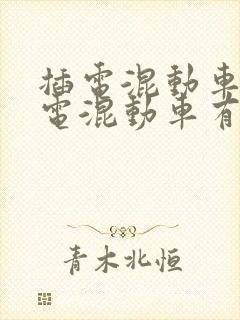 插電混動車
電混動車有
青木北恒